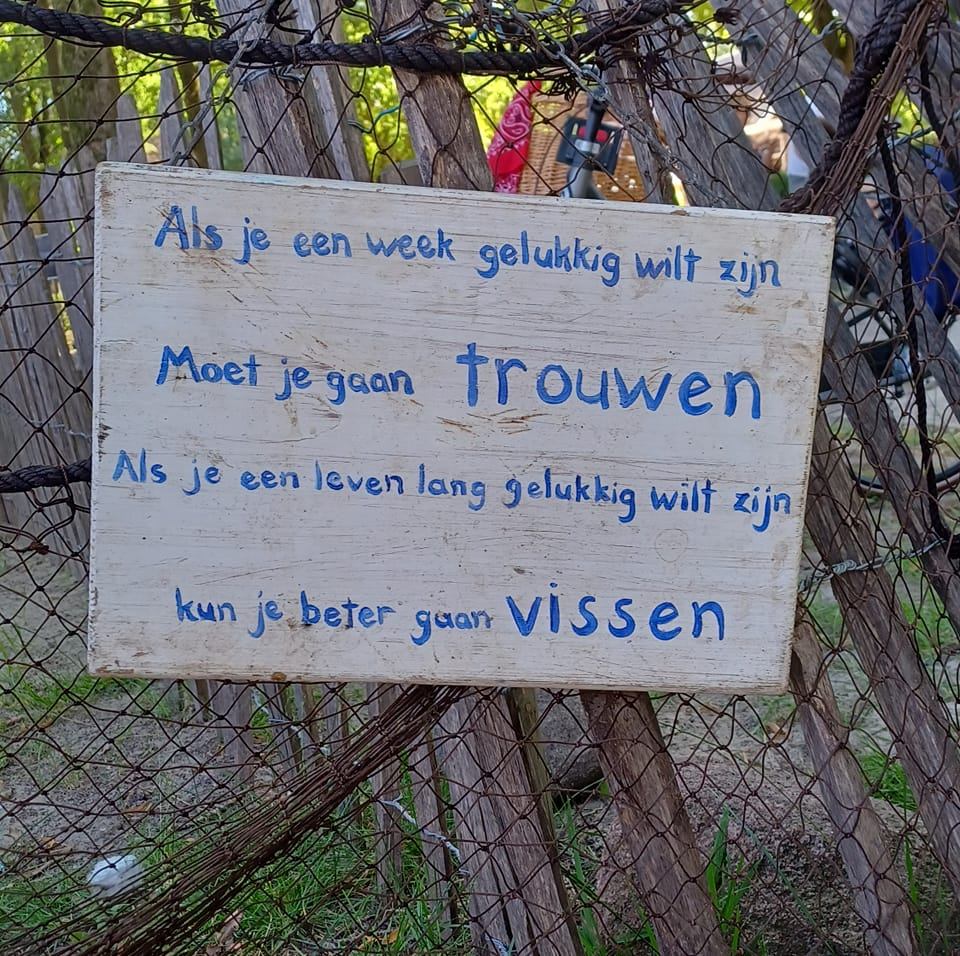 Als je een week gelukkig wilt zijn
Moet je gaan trouwen
Als je een leven lang gelukkig wilt zijn
kun je beter gaan vissen